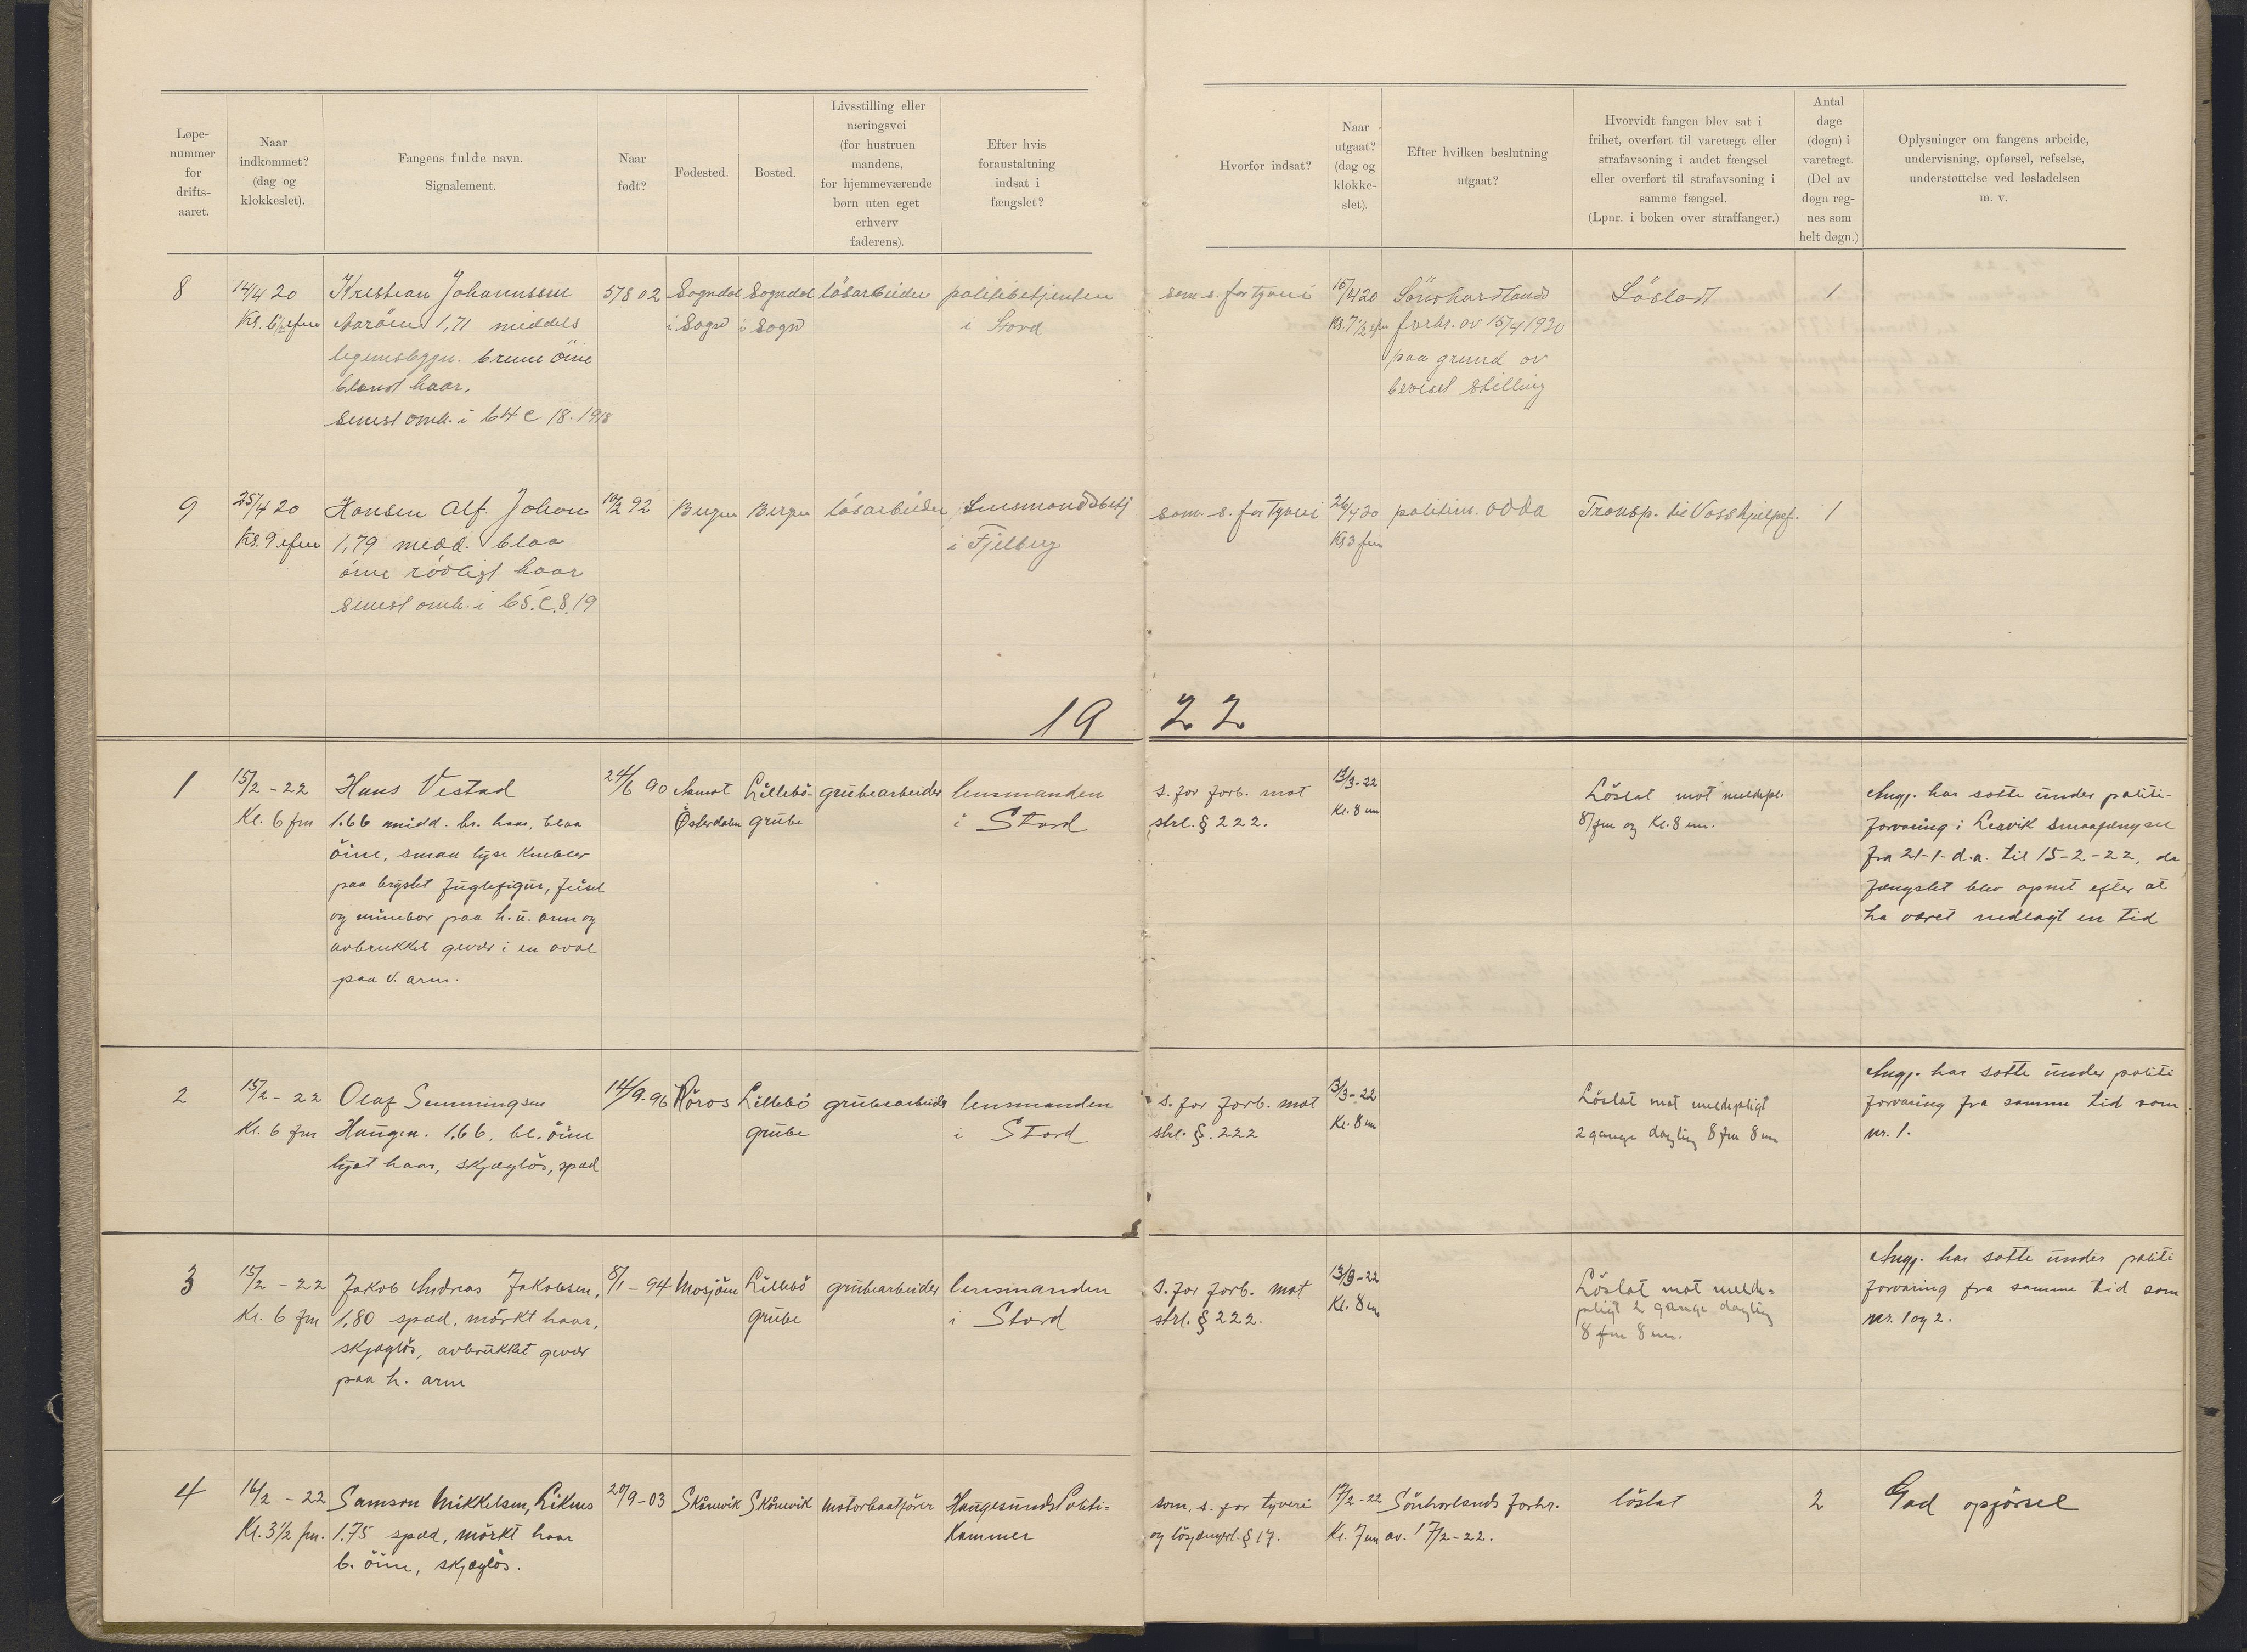 Løpe-
nummer
for
drifts-
aaret.
Naar
indkommet?
(dag og
klokkeslet).
Fangens fulde navn.
Signalement.
Naar
født?
Fødested.
Bosted.
Livsstilling eller
næringsvei
(for hustruen
mandens,
for hjemmeværende
børn uten eget
erhverv
faderens).
Efter hvis
foranstaltning
indsat i
fængslet?
Hvorfor indsat?
Naar
utgaat?
(dag og
klokke-
slet).
Efter hvilken beslutning
utgaat?
Hvorvidt fangen blev sat i
frihet, overført til varetægt eller
strafavsoning i andet fængsel
eller overført til strafavsoning i
samme fængsel.
(Lpnr. i boken over straffanger.)
Antal
dage
(døgn) i
varetægt.
(Del av
døgn reg-
nes som
helt døgn.)
Oplysninger om fangens arbeide,
undervisning, opførsel, refselse,
understøttelse ved løsladelsen
m. v.
8
14/4 20
Kristian Johannssen
1,71 middels
legemsbygn. brune öine
blondt haar.
senest omh. i 64 C 18. 1918
5/8 02
Sogndal
i Sogn
Sogndal
i Sogn
lösarbeider
politibetjenten
i Stord
som s. for tyveri
15/4 20
Sönhordlands
forhr. av 15/4 1920
paa grund av
bevisets stilling
Lösladt
1
9
25/4 20
Kl. 9 efm
Hansen Alf. Johan
1,79 midd. blaa
öine rödligt haar
senest omh. i 65. C. 8. 19
10/2 92
Bergen
Bergen
lösarbeider
Lensmandsbetj
i Fjelberg
som s. for tyveri
26/4 20
Kl 3 fm
politim. Odda
Transp. til Voss hjelpef.
1
19 22
1
15/2 - 22
Kl. 6 fm
Hans Vestad
1.66 midd. br. haar, blaa
öine, smaa lyse knebler
paa brystet fuglefigur, feisel
og minebor paa h. u. arm og
avbrukket gevær i en oval
paa v. arm.
24/6 90
Aamot
Österdalen
Lillebö-
grube
grubearbeider
lensmanden
i Stord
s. for forb. mot
strl. § 222.
13/3-22
Kl. 8 em
Löslat mot meldepl.
8 fm og Kl. 8 em.
Angj. har sotte under politi-
forvaring i Leirvik smaafængsel
fra 21-1-d.a. til 15-2-22, da
fængslet blev opnet efter at
ha været nedlagt en tid
2
15/2 - 22
Kl. 6 fm
Olaf Semmingsen
Haugen. 1,66, bl. öine
lyst haar, skjæglös, spæd
14/9-96
Röros
Lillebö
grube
grubearbeider
lensmanden
i Stord
s. for forb. mot
strl. §. 222
13/3-22
Kl. 8 em
Löslat mot meldepligt
2 gange daglig 8 fm 8 em
Angj. har sotte under politi
forvaring fra samme tid som
nr. 1.
3
15/2 - 22
Kl. 6 fm
Jakob Andreas Jakobsen,
1,80 spæd, mörkt haar,
skjæglös, avbrukket gevær
paa h. arm
8/1 - 94
Mosjöen
Lillebö
grube
grubearbeider
lensmanden
i Stord
s. for forb. mot
strl. § 222.
13/3-22
Kl. 8 em
Löslat mot melde-
pligt 2 gange daglig
8 fm 8 em.
Angj. har sotte under politi
forvaring fra samme tid som
nr. 1 og 2.
4
16/2 - 22
Kl. 3 1/2 fm.
Samson Mikkelsen,
1.75 spæd, mörkt haar
b. öine, skjæglös.
20/9-03
Skånevik
Skånevik
motorbaatförer
Haugesunds Politi-
Kammer
som s. for tyveri
og lösgængerl. § 17.
17/2-22
Kl. 7 em
Sönhorlands forhr.
av. 17/2-22.
löslat
2
God opförsel